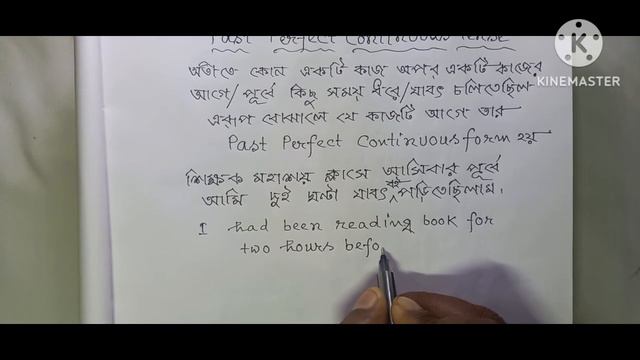 Past Perfect Continuous Tense
অতীতে কোন একটি কাজ অপর একটি কাজের
আগে/পূর্বে কিছু সময় ধরে/যাবৎ চলিতেছিল
এরূপ বোঝালে যে কাজটি আগে তার
Past Perfect Continuous form হয়
শিক্ষক মহাশয় ক্লাসে আসিবার পূর্বে
আমি দুই ঘন্টা যাবৎ বই পড়িতেছিলাম।
I had been reading book for
two hours befo
KINEMASTER